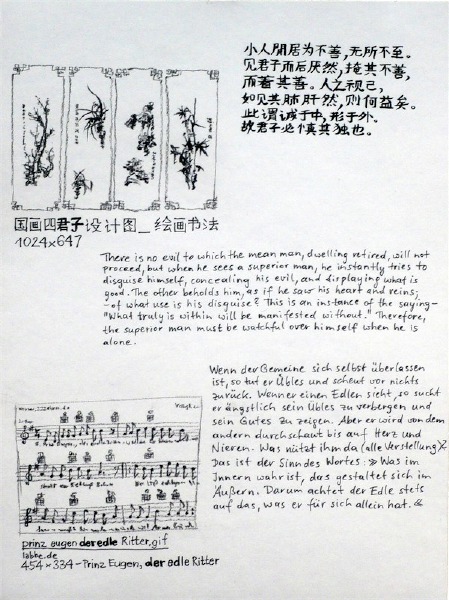 小人閒居为不善,无所不至。
见君子而后厌然,掩其不善,
而著其善。人之视己,
如见其肺肝然,则何益矣。
此谓诚于中,形于外。
故君子必慎其独也。
国画四君子设计图_绘画书法
1024×647
There is no evil to which the mean man, dwelling retired, will not
proceed, but when he sees a superior man, he instantly tries to
disguise himself, concealing his evil, and displaying what is
good. The other beholds him, as if he saw his heart and reins;
- of what use is his disguise? This is an instance of the saying -
"What truly is within will be manifested without." Therefore,
the superior man must be watchful over himself when he is
alone.
Wenn der Gemeine sich selbst überlassen
ist, so tut er Übles und scheut vor nichts
zurück. Wenn er einen Edlen sieht, so sucht
er ängstlich sein Übles zu verbergen und
sein Gutes zu zeigen. Aber er wird von dem
andern durchschaut bis auf Herz und
Nieren. Was nützt ihm da (alle Verstellung)?
Das ist der Sinn des Wortes: » Was im
Innern wahr ist, das gestaltet sich im
Äußern. Darum achtet der Edle stets
auf das, was er für sich allein hat. «
prinz eugen der edle Ritter.gif
labbe.de
454×334 - Prinz Eugen, der edle Ritter